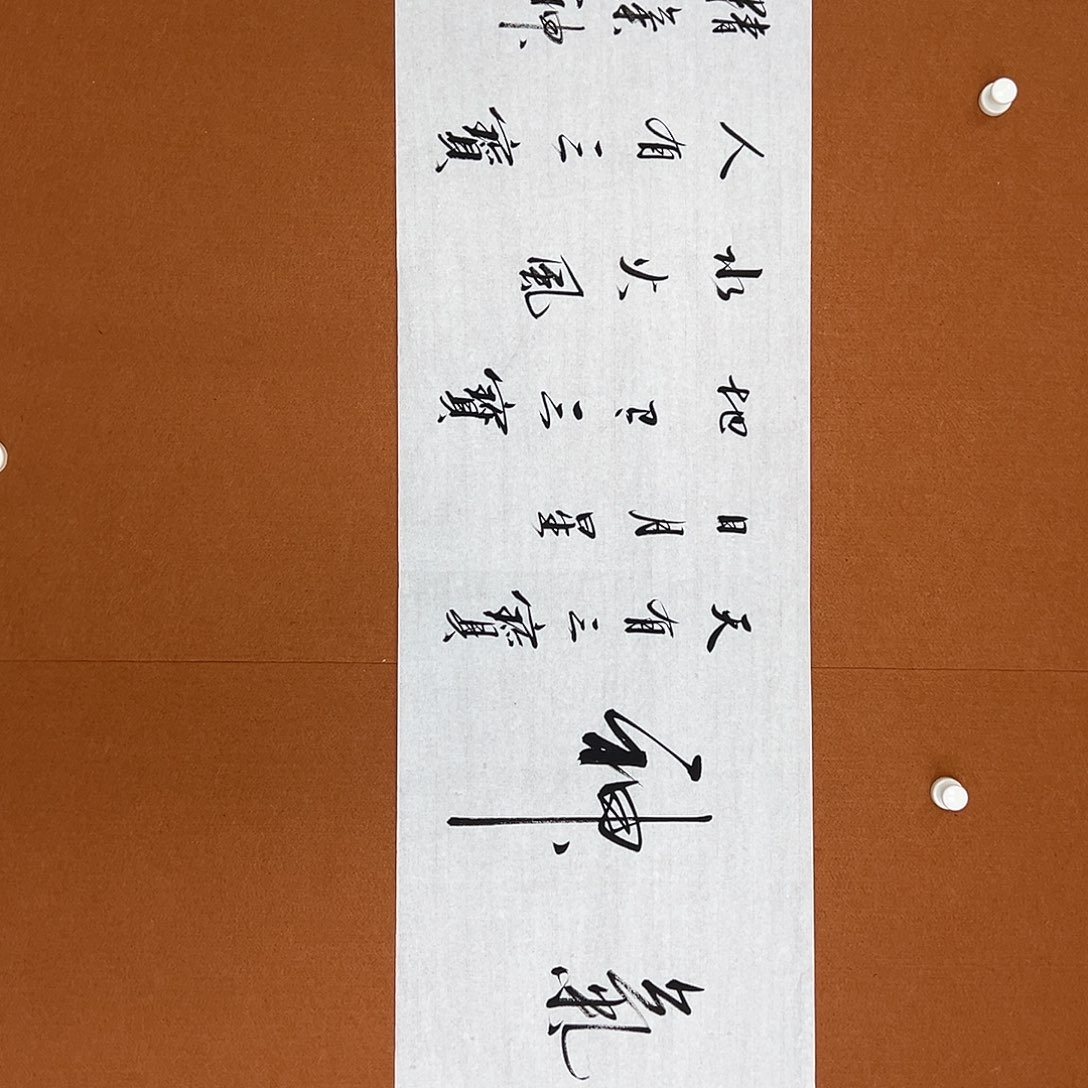 氣
神
天有三寶
日月星
地有三寶
水火風
人有三寶
精氣神